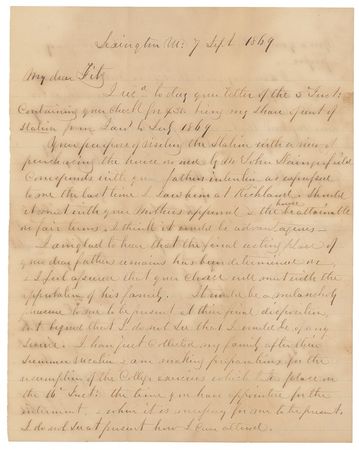 Lexington Va: 7 Sept 1869
My dear Fitz
I recd to day your letter of the 3d Inst:
Containing your Check for $ being my share of rent of
Station from Jany to July 1869
Your purpose of visiting the Station with a view of
purchasing the house on it by Mr John
Corresponds with your father's intention as expressed
to me the last time I saw him at Richland. Should
it meet with your Mothers approval & the house be attainable
on fair terms, I think it would be advantageous
I am glad to hear that the final resting place of
your dear fathers remains has been determined on
& I feel assured that your Choice will meet with the
approbation of his family. It would be a melancholy
pleasure to me to be present at their final disposition,
but beyond that I do not see that I would be of any
service. I have just Collected my family after their
summer vacation & am making preparations for the
resumption of the College exercises which take place on
the 16th Inst: the time you have appointed for the
interment, & when it is necessary for me to be present.
I do not see at present how I can attend.